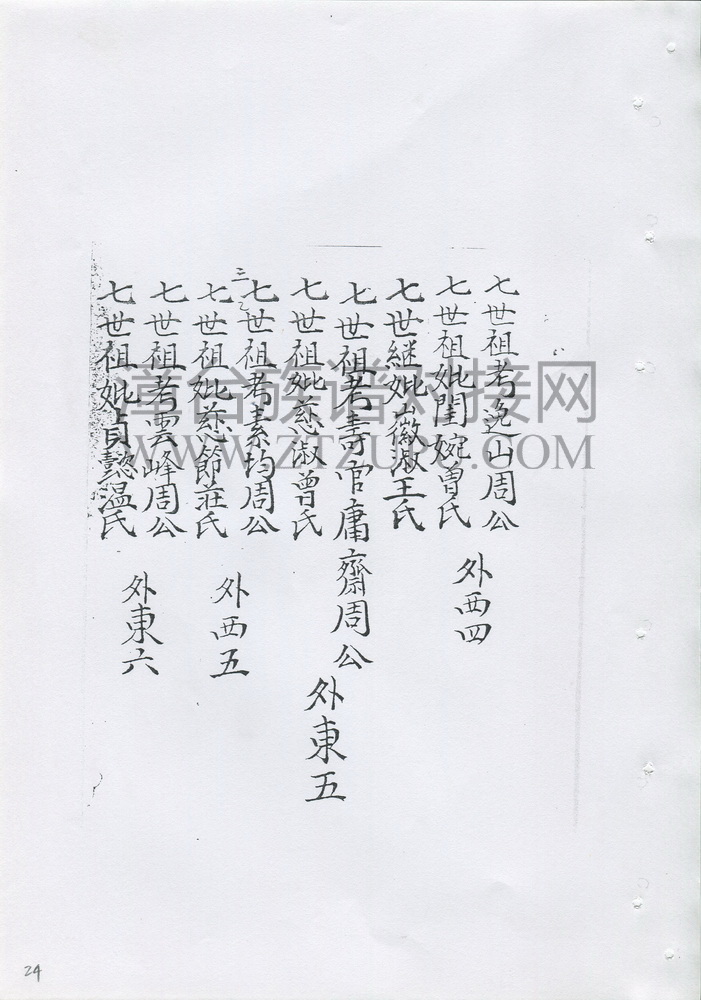 七世祖考逸山周公
七世祖妣閨婉曾氏
外西四
七世継妣徽淑王氏
七世祖考壽官庸齋周公
外東五
七世祖妣慈淑曾氏
三
七世祖考素均周公
七世祖妣慈節莊氏
外西五
七世祖考雲峰周公
七世祖妣貞懿温氏
外東六
漳台族谱对接网
WWW.ZTZUPU.COM
24